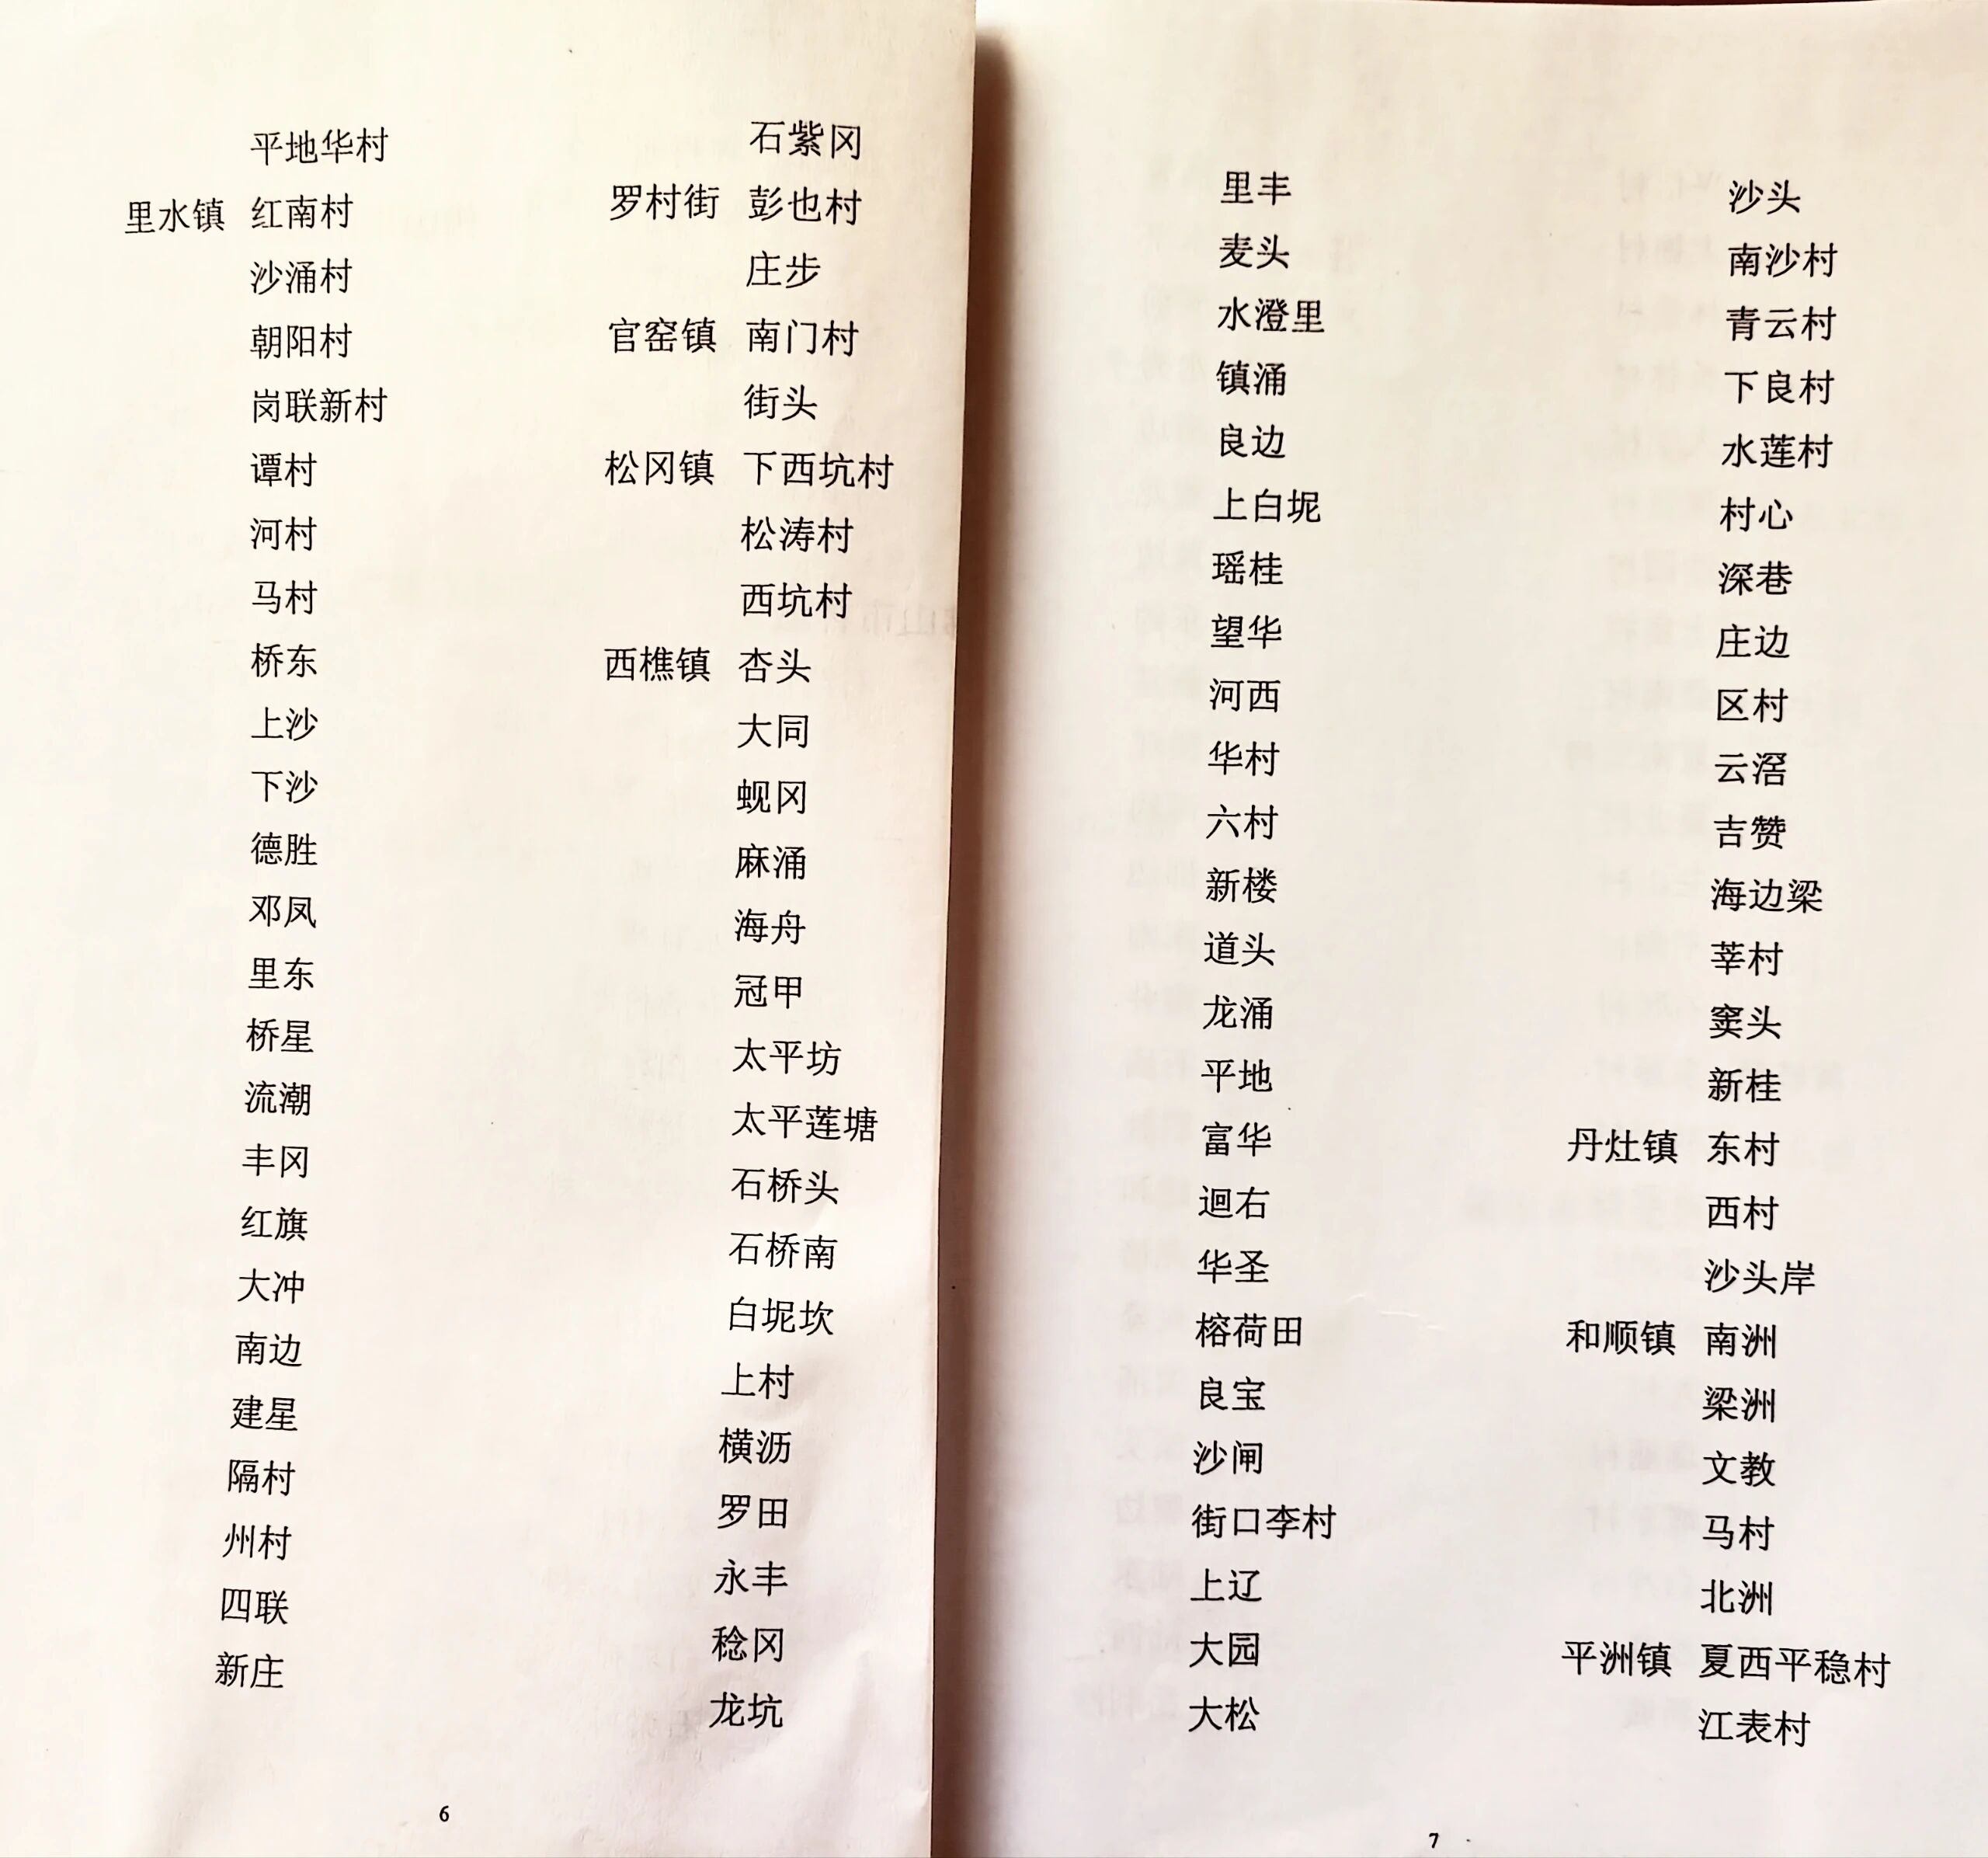 平地华村
里水镇 红南村
沙涌村
朝阳村
岗联新村
谭村
河村
马村
桥东
上沙
下沙
德胜
邓凤
里东
桥星
流潮
丰冈
红旗
大冲
南边
建星
隔村
州村
四联
新庄
石紫冈
罗村街 彭也村
庄步
官窑镇 南门村
街头
松冈镇 下西坑村
松涛村
西坑村
西樵镇 杏头
大同
蚬冈
麻涌
海舟
冠甲
太平坊
太平莲塘
石桥头
石桥南
白坭坎
上村
横沥
罗田
永丰
稔冈
龙坑
6
里丰
麦头
水澄里
镇涌
良边
上白坭
瑶桂
望华
河西
华村
六村
新楼
道头
龙涌
平地
富华
迴右
华圣
榕荷田
良宝
沙闸
街口李村
上辽
大园
大松
沙头
南沙村
青云村
下良村
水莲村
村心
深巷
庄边
区村
云滘
吉赞
海边梁
莘村
窦头
新桂
丹灶镇 东村
西村
沙头岸
和顺镇 南洲
梁洲
文教
马村
北洲
平洲镇 夏西平稳村
江表村
7